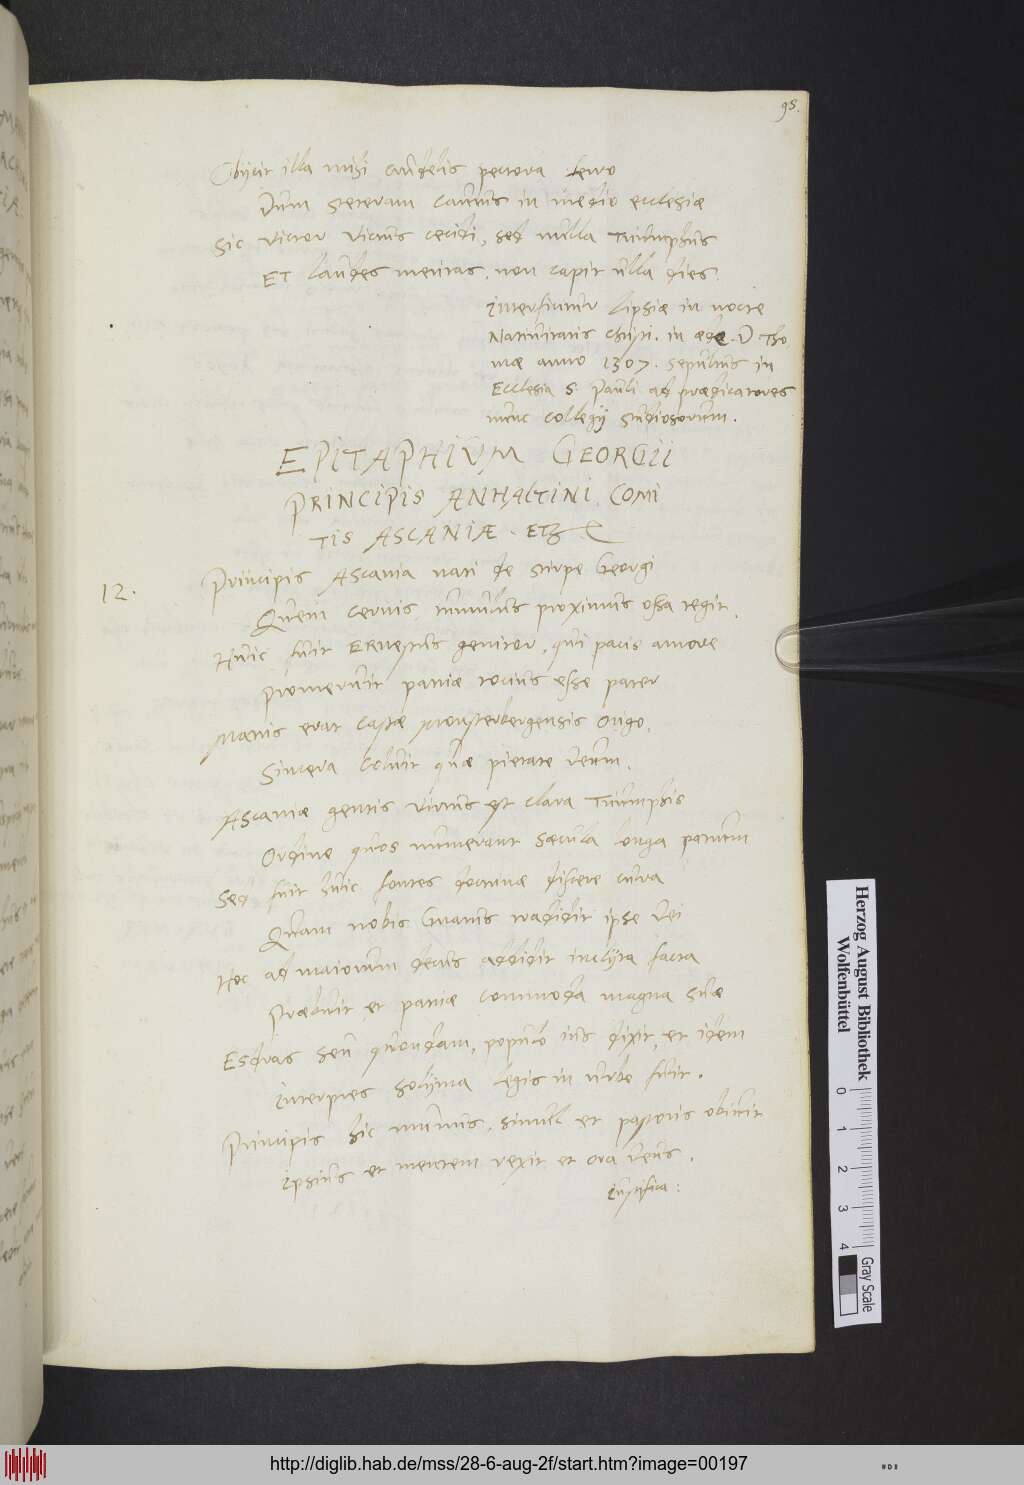 95.
Obijcit illa mihi crudelis pectora ferro
Dum steteram cautus in medio ecclesiæ
Sic victor victus cecidi, sed nulla Triumphus
Et laudes meritas, non capit ulla dies.
Interficitur Lipsiæ in nocte
Nativitatis Christi. in æde. D Tho
mæ anno 1307. sepultus in
Ecclesia S. Pauli ad prædicatores
nunc collegij studiosorum.
EPITAPHIUM GEORGII
PRINCIPIS ANHALTINI, COMI
TIS ASCANIÆ. ETZ
12.
Principis Ascania nati de stirpe Georgi
Quem cernis, tumulus proximus ossa tegit.
Hunc fuit Ernestus genitor, qui pacis amore
Promeruit patriæ totius esse pater
Matris erat castæ Monsterbergensis origo,
Sincera coluit quæ pietate Deum.
Ascaniæ gentis virtus et clara Triumphis
Ordine quos numerant sæcula longa patrum
Sed fuit huic fontes doctrinæ discere cura
Quam nobis Gnatus tradidit ipse Dei
Hoc ad maiorum decus addidit inclyta facta
Præbuit et patriæ commoda magna suæ
Esdras seu quondam, populo ius dixit, et idem
Interpres Solyma legis in urbe fuit.
Principis hic munus, simul et pastoris obivit
Ipsius et mentem rexit et ora Deus.
Iustifica:
Herzog August Bibliothek
Wolfenbüttel
0 1 2 3 4
Gray Scale
http://diglib.hab.de/mss/28-6-aug-2f/start.htm?image=00197